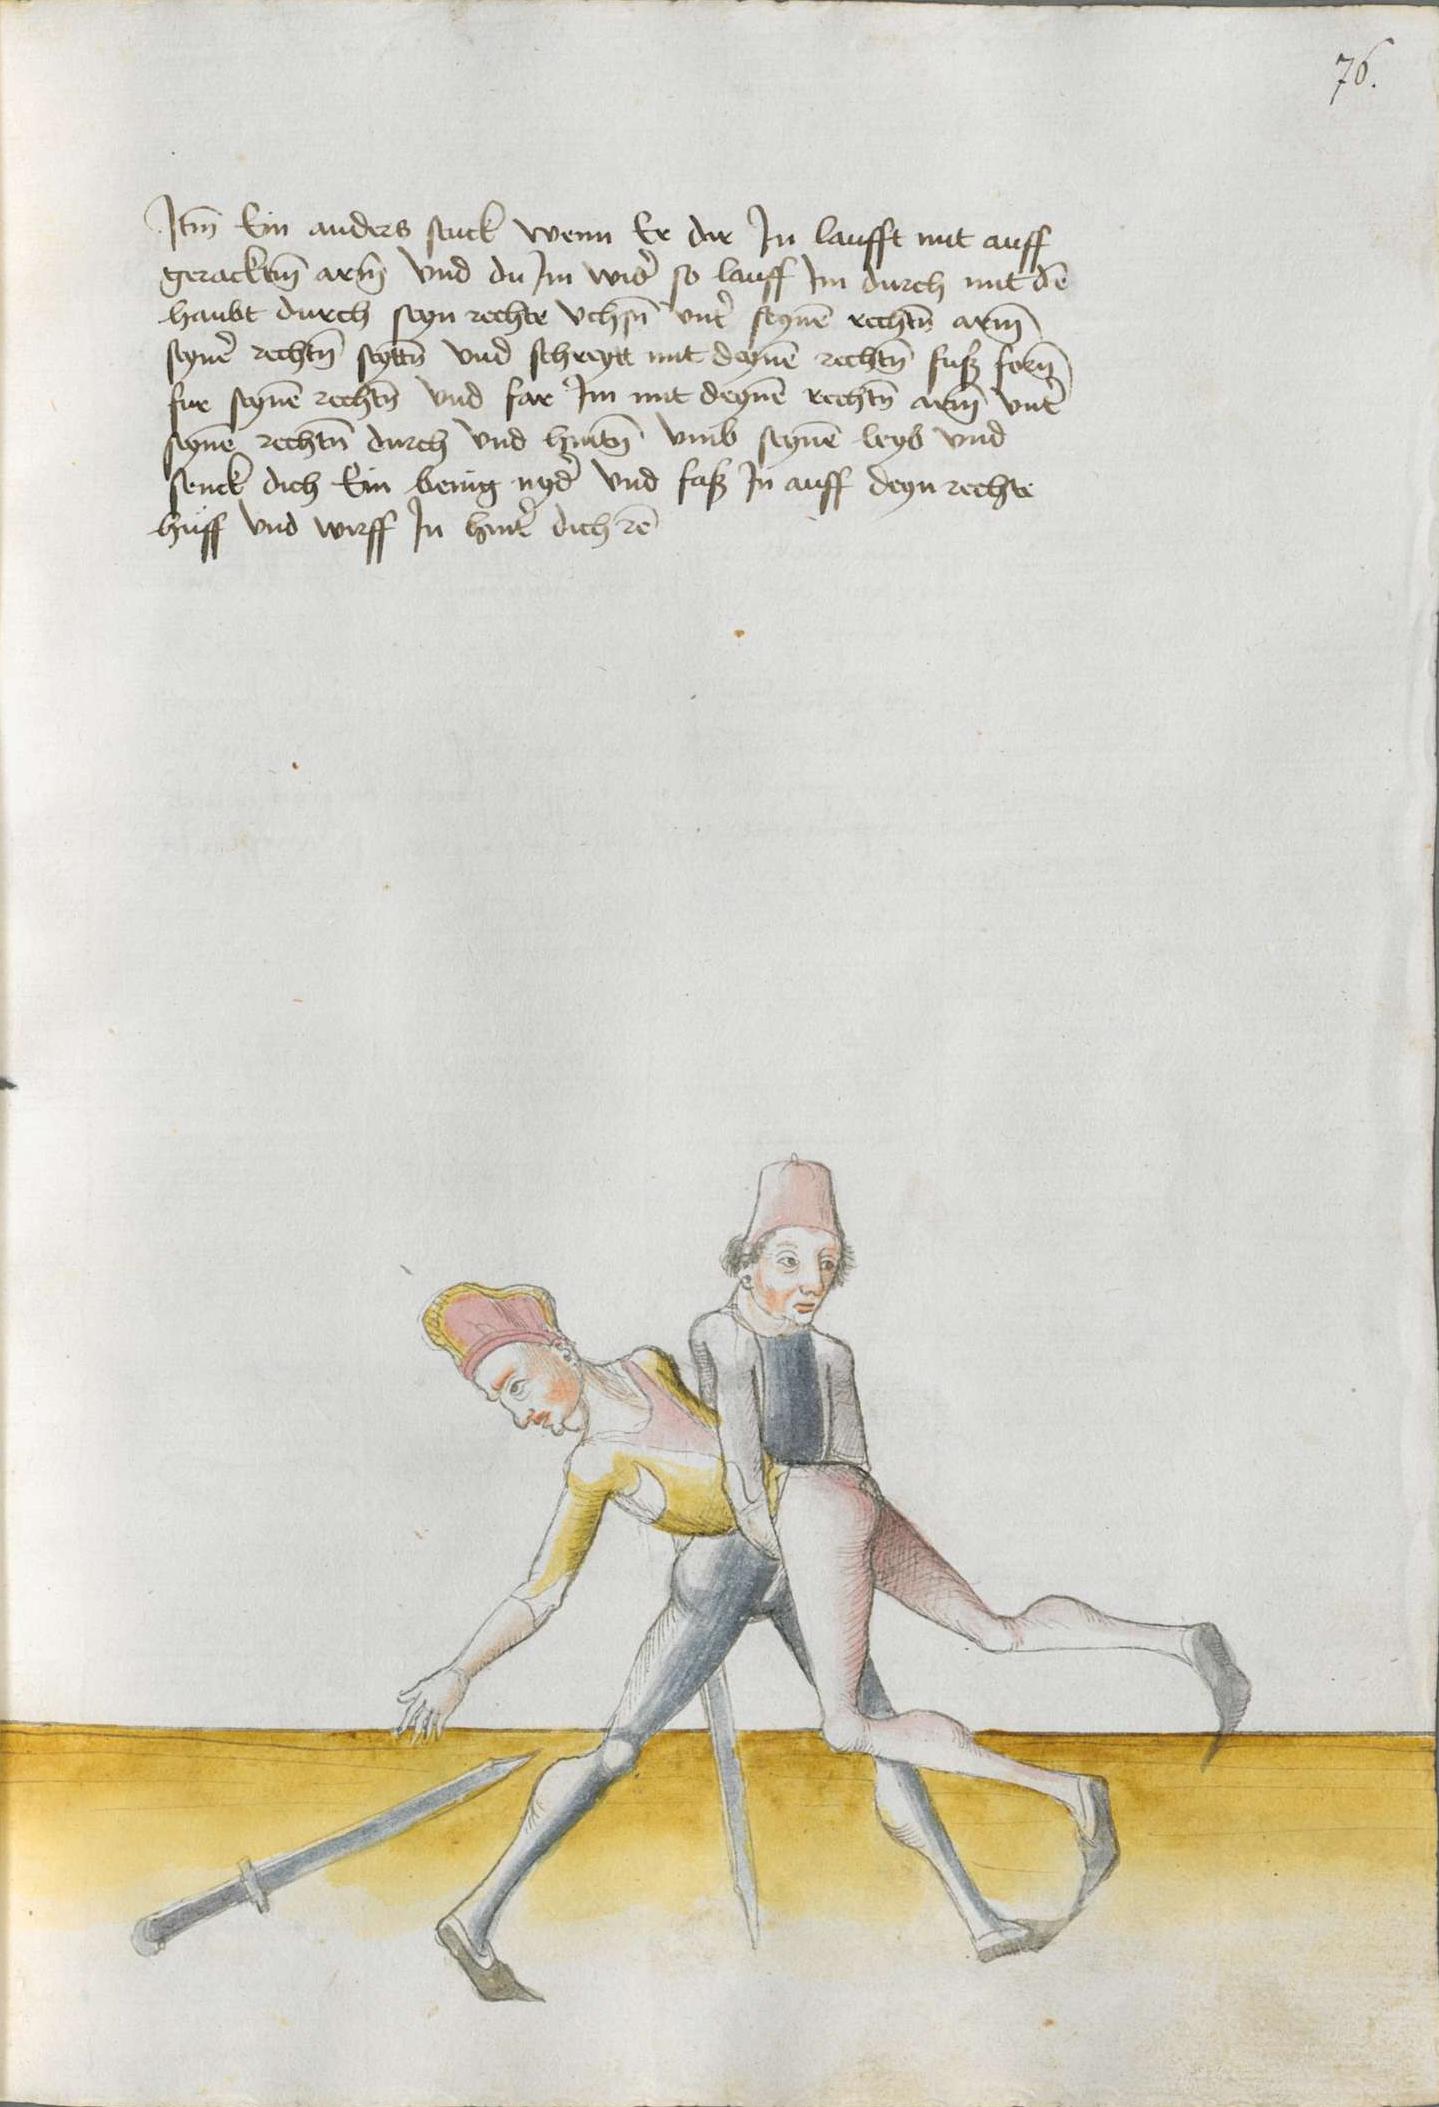 76.
Itm̄ Ein anders stuck wenn Er dir In laufft mit auff
geracktm̄ arm̄ vnd du Im wid̕ so lauff Im durch mit dē
haubt durch seyn rechte vchsn̄ vnt̕ seynē rechtn̄ arm̄
seyne᷑ rechtn̄ seyttn̄ vnd schreytt mit deynē rechtn̄ fuß forn̄
fur seynē rechtn̄ vnd far Im mit deynē rechtn̄ arm̄ vnt̕
seynē rechtn̄ durch vnd hintn̄ vmb seynē leyb vnd
senck dich Ein benig nyd̕ vnd faß In auff deyn rechte
hüff vnd wirff In hint̕ dich rē